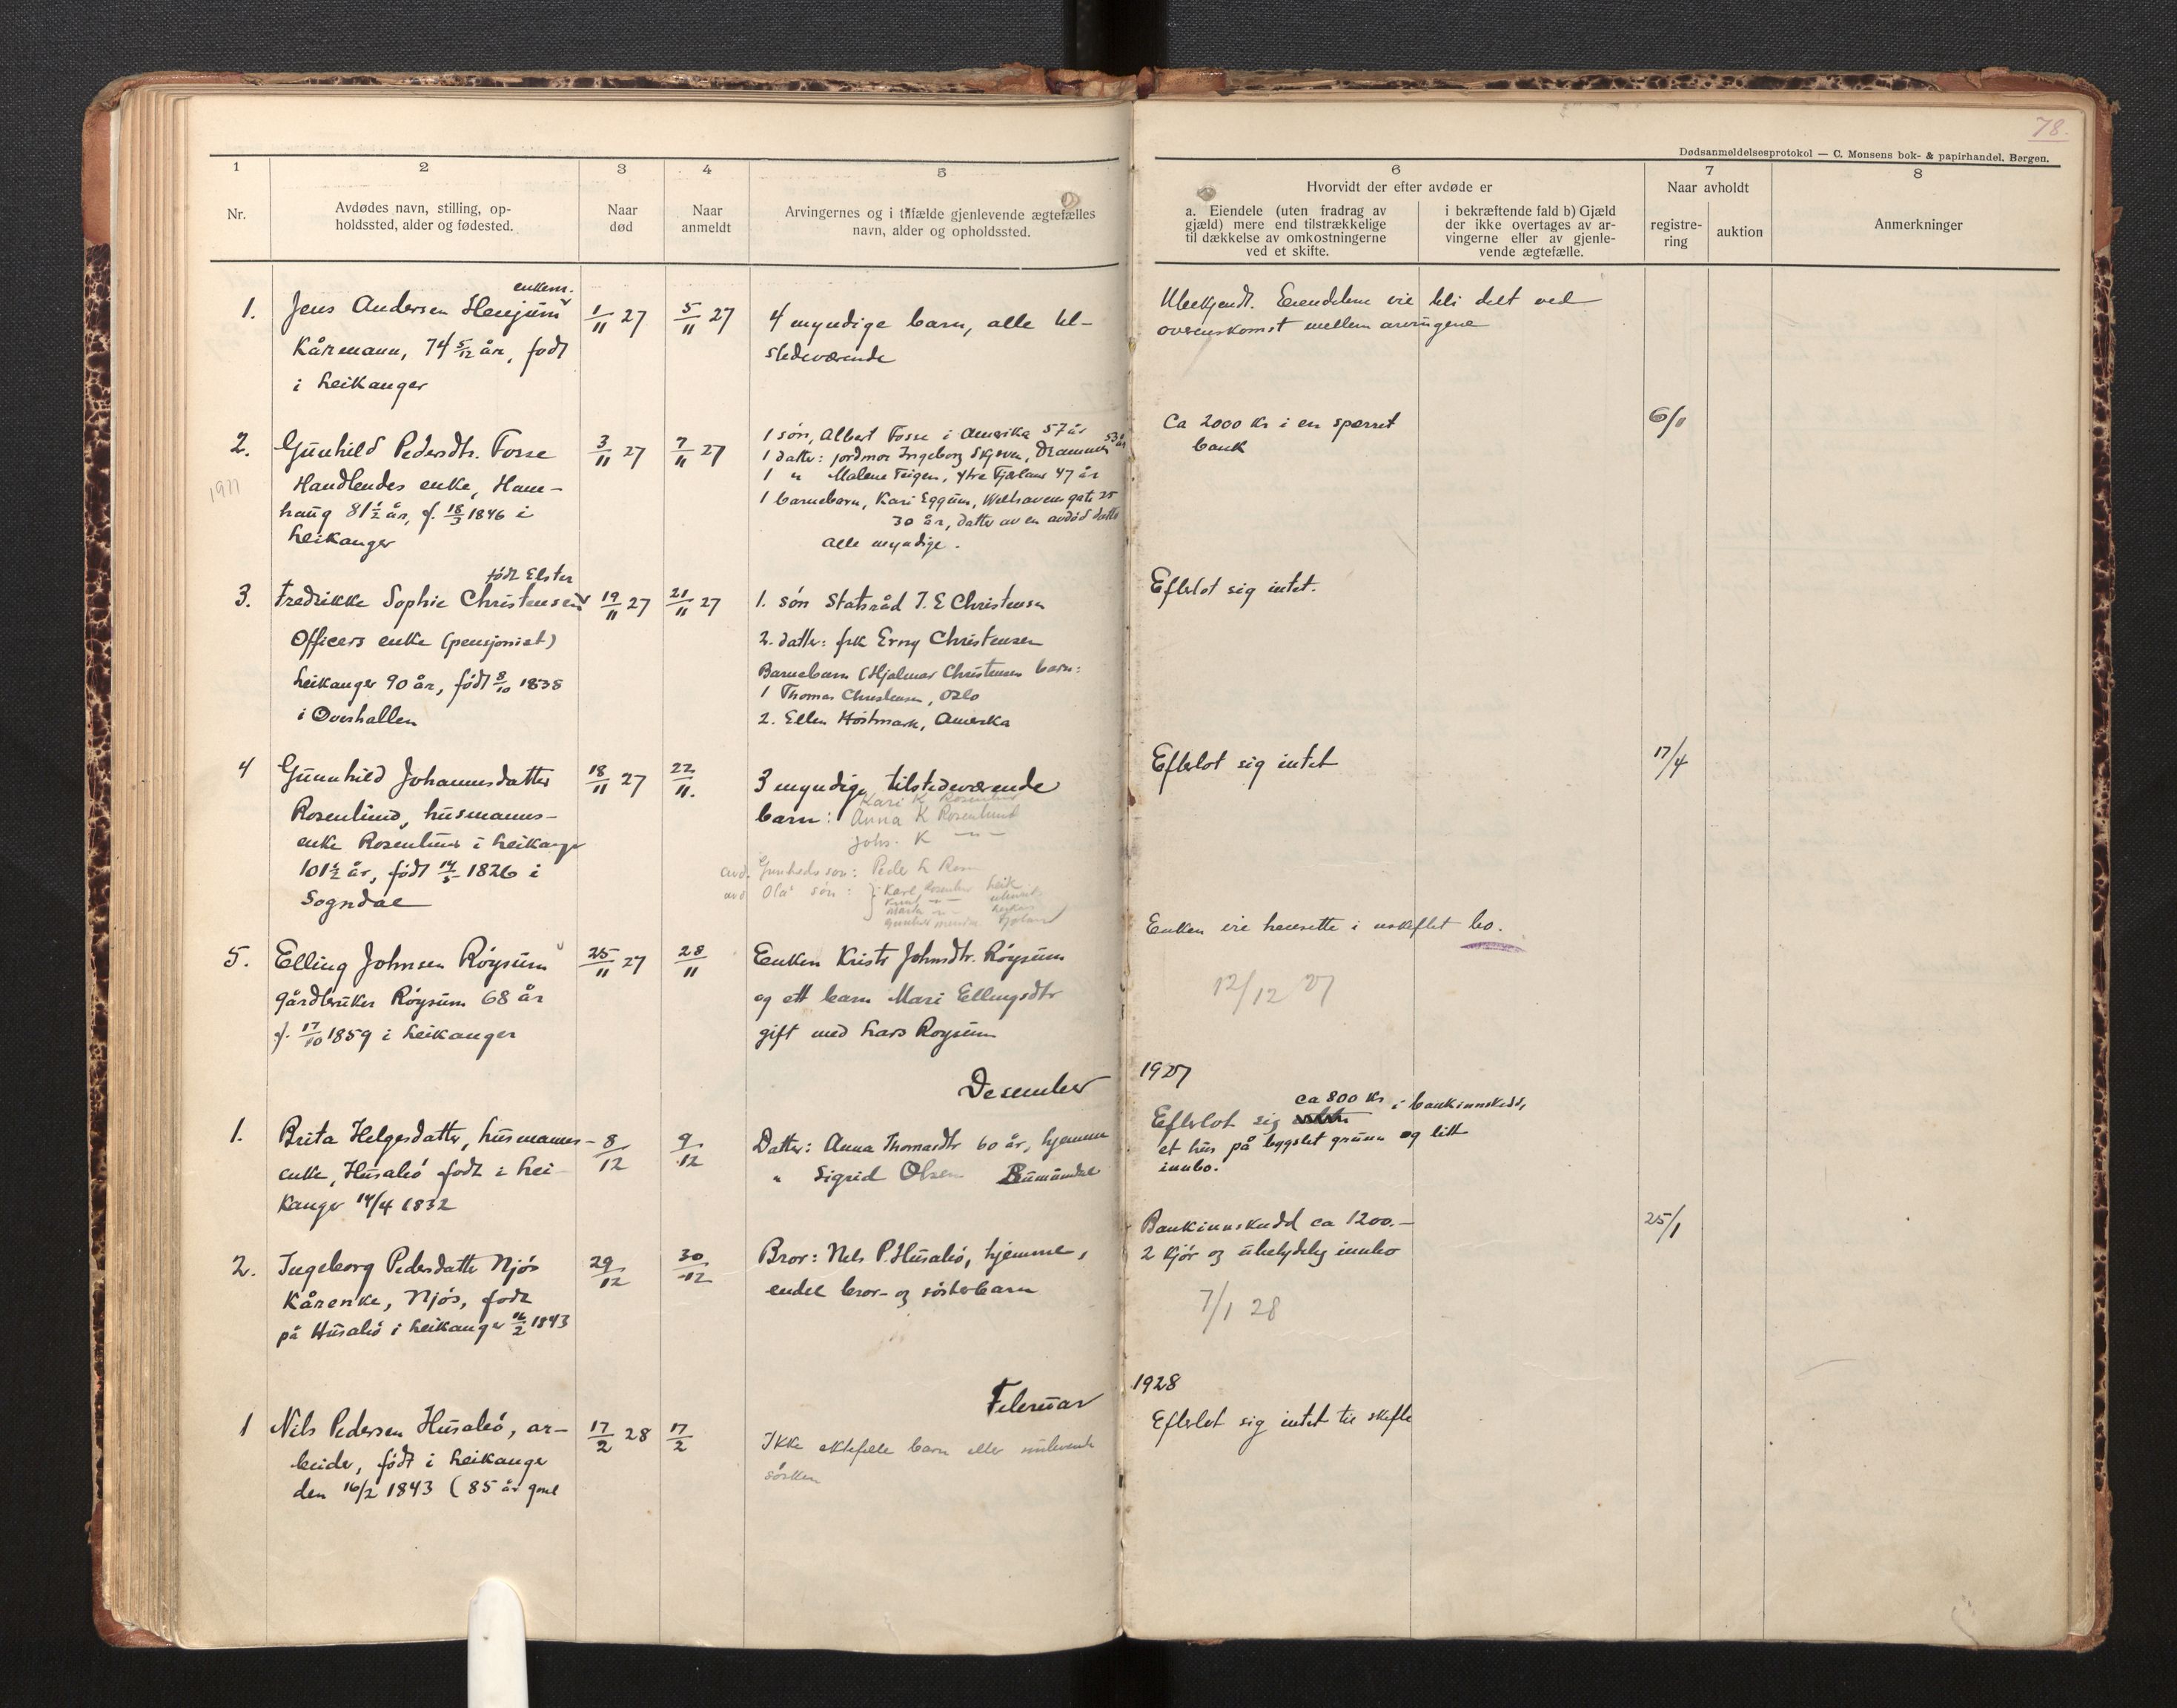 78.
Dødsanmeldelsesprotokol — C. Monsens bok- & papirhandel, Bergen.
1 2 3 4 5 6 7 8
Nr.
Avdødes navn, stilling, op-
holdssted, alder og fødested.
Naar
død
Naar
anmeldt
Arvingernes og i tilfælde gjenlevende ægtefælles
navn, alder og opholdssted.
Hvorvidt der efter avdøde er
a. Eiendele (uten fradrag av
gjæld) mere end tilstrækkelige
til dækkelse av omkostningerne
ved et skifte.
i bekræftende fald b) Gjæld
der ikke overtages av ar-
vingerne eller av gjenle-
vende ægtefælle.
Naar avholdt
registre-
ring
auktion
Anmerkninger
enkem.
1. Jens Andersen Henjum
Kårmann, 74 5/12 år, født
i Leikanger
1/11 27
5/11 27
4 myndige barn, alle til-
stedeværende
Ubekjendt. Eiendelene vil bli delt ved
overenskomst mellem arvingene
2. Gunhild Pedersdtr. Fosse
1911
Handlendes enke, Ham-
haug 81 1/2 år, f. 18/3 1846 i
Leikanger
3/11 27
7/11 27
1 søn, Albert Fosse i Amerika 57 år
1 datter: jordmor Ingeborg Skjerven, Drammen 53 år
1 " Malene Feigen, Ytre Fjærland 47 år
1 barnebarn, Kari Eggum, Welhavensgate 25
30 år, datter av en avdød datter
Alle myndige.
Ca 2000 Kr i en sperret
bank
6/11
født Elster
3. Fredrikke Sophie Christensen
Officers enke (pensjonist)
Leikanger 90 år, født 8/10 1838
i Overhallen
19/11 27
21/11 27
1. søn Statsråd J. E Christensen
2. datter: frk Erny Christensen
Barnebarn (Hjalmar Christensens barn:
1 Thomas Christensen, Oslo
2. Ellen Høstmark, Amerika
Efterlot sig intet.
4 Gunnhild Johannesdatter
Rosenlund, husmanns-
enke Rosenlund i Leikanger
101 1/2 år, født 14/5 1826 i
Sogndal
18/11 27
22/11.
3 myndige tilstedeværende
Kari K Rosenlund
barn: Anna K Rosenlund
Johs. K — " —
avd. Gunhilds son: Peder L Rosen
avd Ola's søn: Karl Rosenlund Leik
Efterlot sig intet
17/4
5. Elling Johnsen Røysum
gårdbruker Røysum 68 år
f. 17/10 1859 i Leikanger
25/11 27
28/11
Enken Kristi Johnsdtr. Røysum
og ett barn Mari Ellingsdtr
gift med Lars Røysum
Enken vil hensitte i uskiftet bo.
12/12 27
Desember 1927
1. Brita Helgesdatter, husmanns-
enke, Husabø født i Lei-
kanger 14/4 1832
8/12
9/12
Datter: Anna Thomasdtr 60 år, hjemme
" Sigrid Olsen
ca 800 Kr i bankinnskudd,
Efterlot sig
et hus på bygslet grunn og litt
innbo.
2. Ingeborg Pedersdatter Njøs
Kårenke, Njøs, født
på Husabø i Leikanger 16/2 1843
29/12
30/12
Bror: Nils P. Husabø, hjemme,
endel bror- og søsterbarn
Bankinnskudd ca 1200.—
2 kjør og ubetydelig innbo
25/1
7/1 28
Februar 1928
1 Nils Pedersen Husabø, ar-
beider, født i Leikanger
den 16/2 1843 (85 år gml
17/2 28
17/2
Ikke ektefelle barn eller
søsken
Efterlot sig intet til skifte